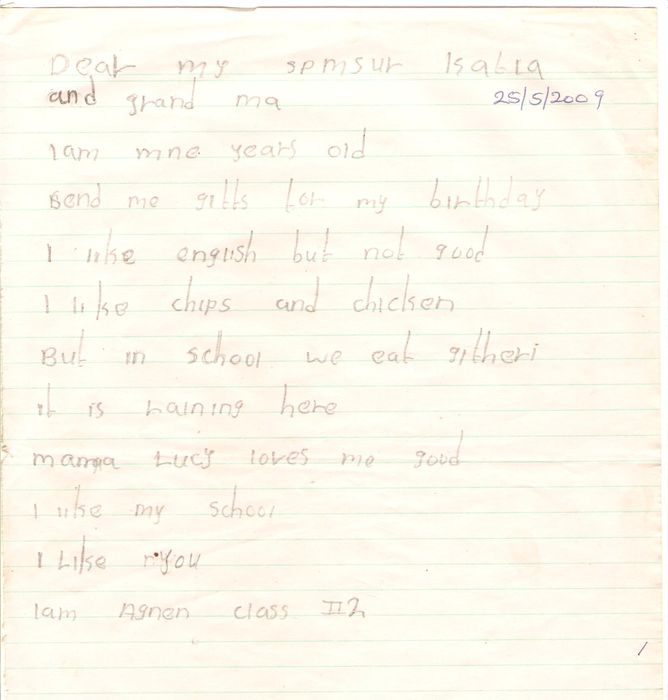 Dear my spmsur Isabla
and grand ma 25/5/2009
Iam nine years old
send me gifts for my birthday
I like english but not good
I like chips and chicken
But in school we eat githeri
it is raining here
mama Lucy loves me good
I like my school
I Like you
Iam Agnen class II2